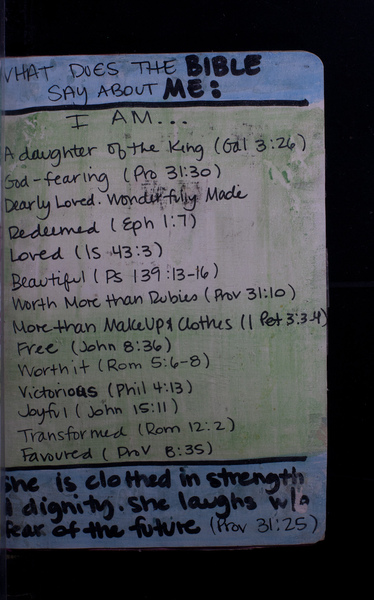 WHAT DOES THE BIBLE
SAY ABOUT ME:
I AM...
A daughter of the King (Gal 3:26)
God-fearing (Pro 31:30)
Dearly Loved. Wonderfully Made
Redeemed (Eph 1:7)
Loved (Is 43:3)
Beautiful (Ps 139:13-16)
Worth More than Rubies (Prov 31:10)
More than MakeUp & Clothes (1 Pet 3:3-4)
Free (John 8:36)
Worth it (Rom 5:6-8)
Victorious (Phil 4:13)
Joyful (John 15:11)
Transformed (Rom 12:2)
Favoured (Prov 8:35)
She is clothed in strength
& dignity. She laughs w/o
fear of the future (Prov 31:25)